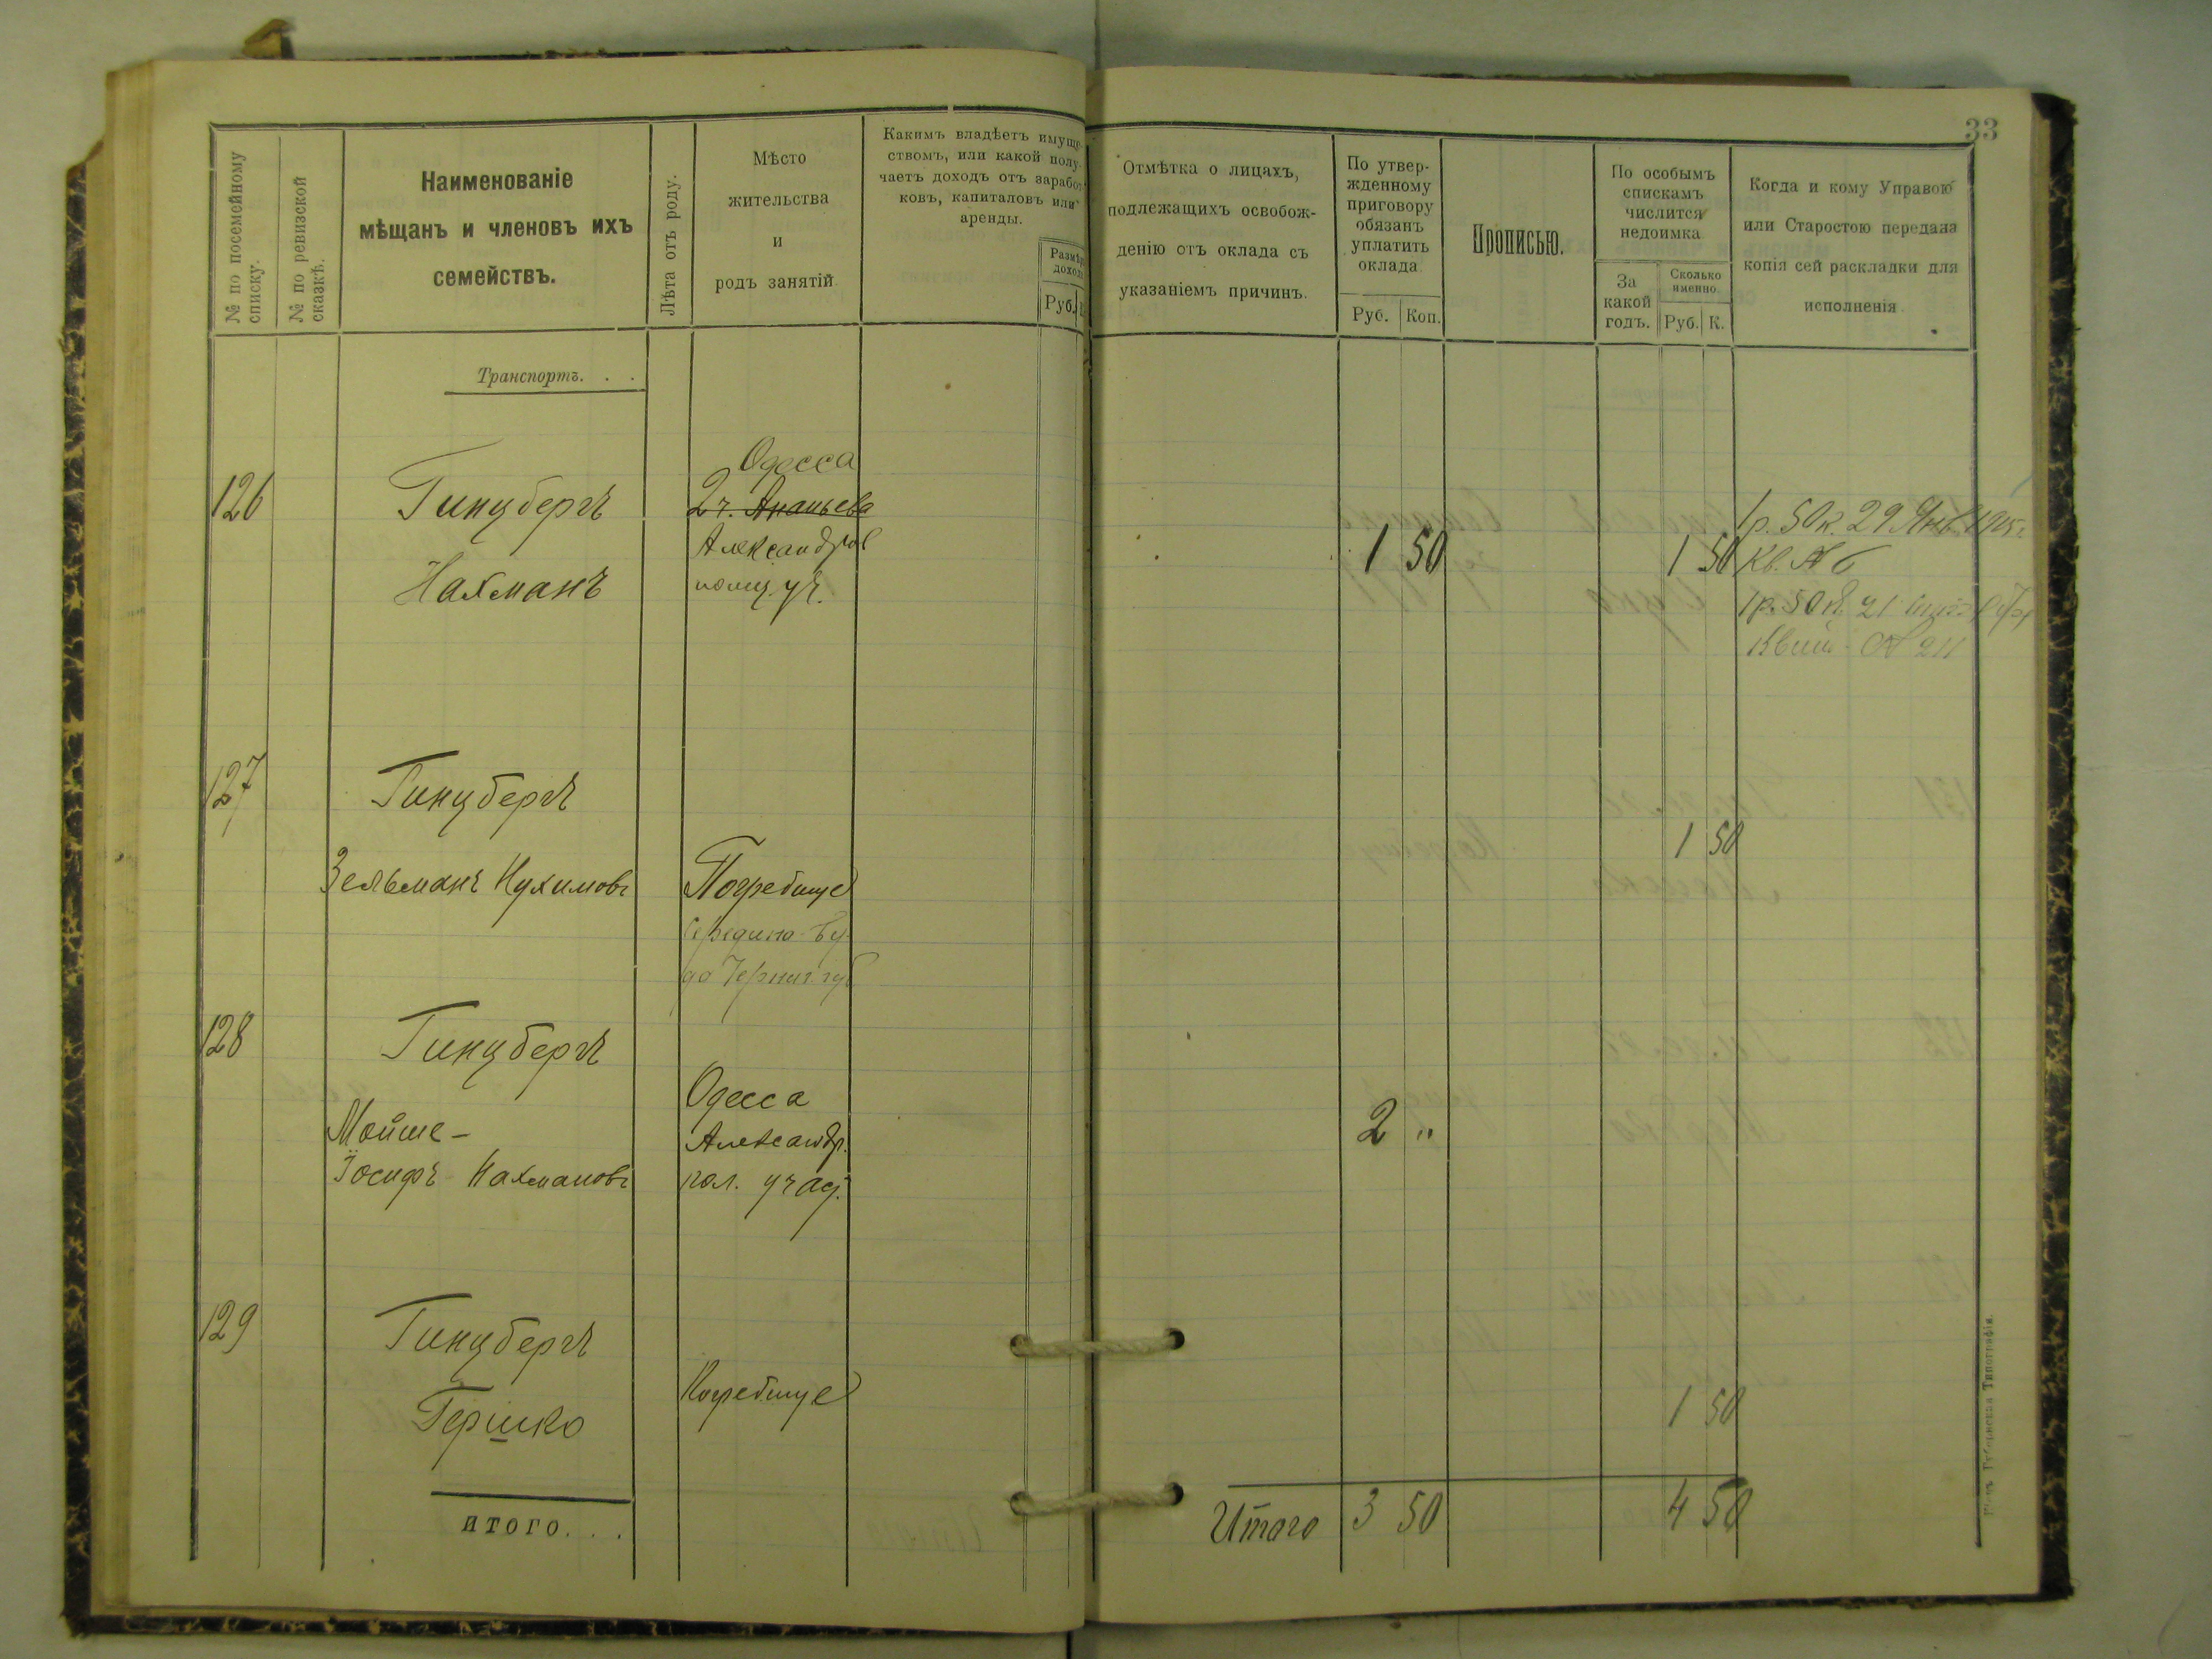 33
№ по посемейному списку.
№ по ревизской сказкѣ.
Наименованіе
мѣщанъ и членовъ ихъ
семействъ.
Лѣта отъ роду.
Мѣсто
жительства
и
родъ занятій.
Какимъ владѣетъ имуще-
ствомъ, или какой полу-
чаетъ доходъ отъ заработ-
ковъ, капиталовъ или
аренды.
Размѣръ
дохода
Руб.
Отмѣтка о лицахъ,
подлежащихъ освобож-
денію отъ оклада съ
указаніемъ причинъ.
По утвер-
жденному
приговору
обязанъ
уплатить
оклада
Руб. Коп.
Прописью.
По особымъ
спискамъ
числится
недоимка
За
какой
годъ.
Сколько
именно.
Руб. К.
Когда и кому Управою
или Старостою передана
копія сей раскладки для
исполненія.
Транспортъ. . .
Одесса
126 Гинцбергъ 2 ч. Ананьева
Александров 1 50 1 50
Нахманъ полиц. уч.
1 р. 50 к. 29 Янв. 1905 г.
Кв. № 6
1 р. 50 к. 21
Квит. № 211
127 Гинцбергъ
1 50
Зельманъ Нухимовъ Погребище
Середино-Бу-
да Черниг. губ
128 Гинцбергъ
Одесса
Мойше- Александр. 2 "
Іосифъ Нахмановъ пол. учас.
129 Гинцбергъ
Погребище
Гершко 1 50
ИТОГО. . .
Итого 3 50 4 50
Губернская Типографія.